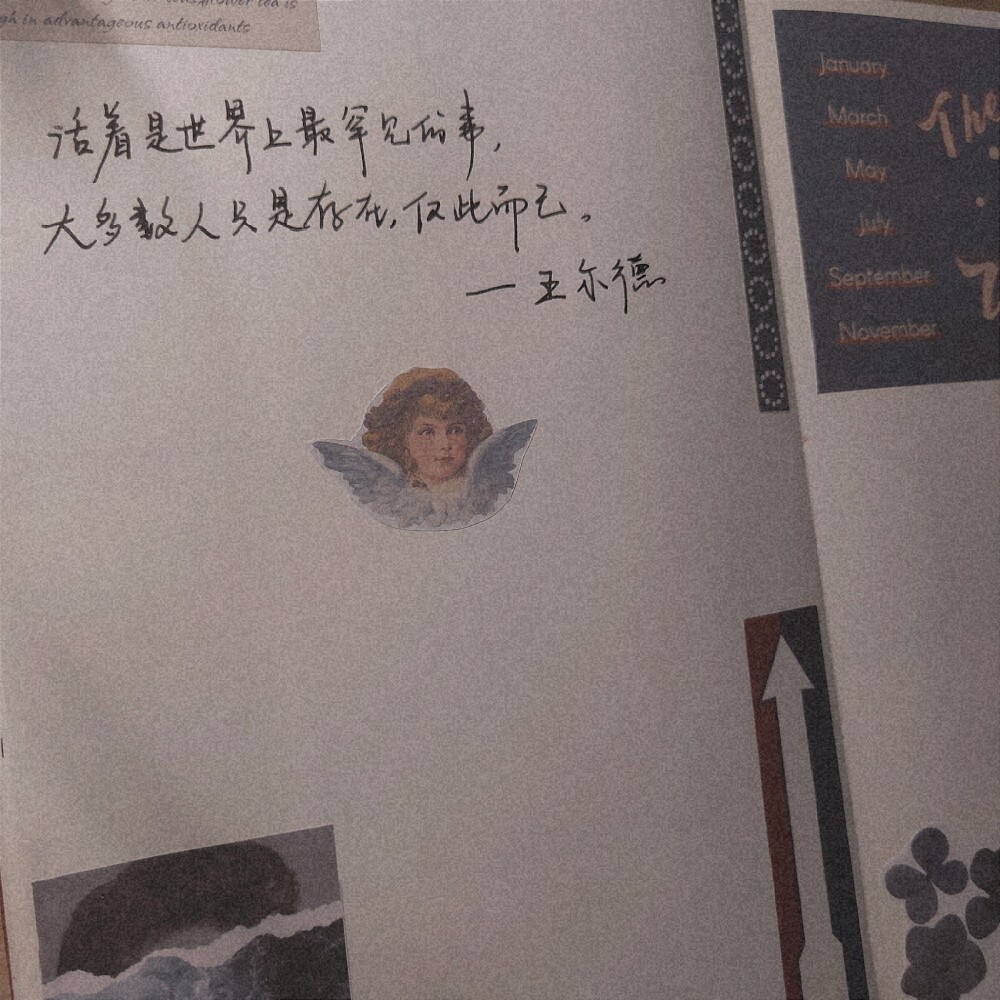 gh in advantageous antioxidants
活着是世界上最罕见的事,
大多数人只是存在,仅此而已。
— 王尔德
January
March
May
July
September
November
The